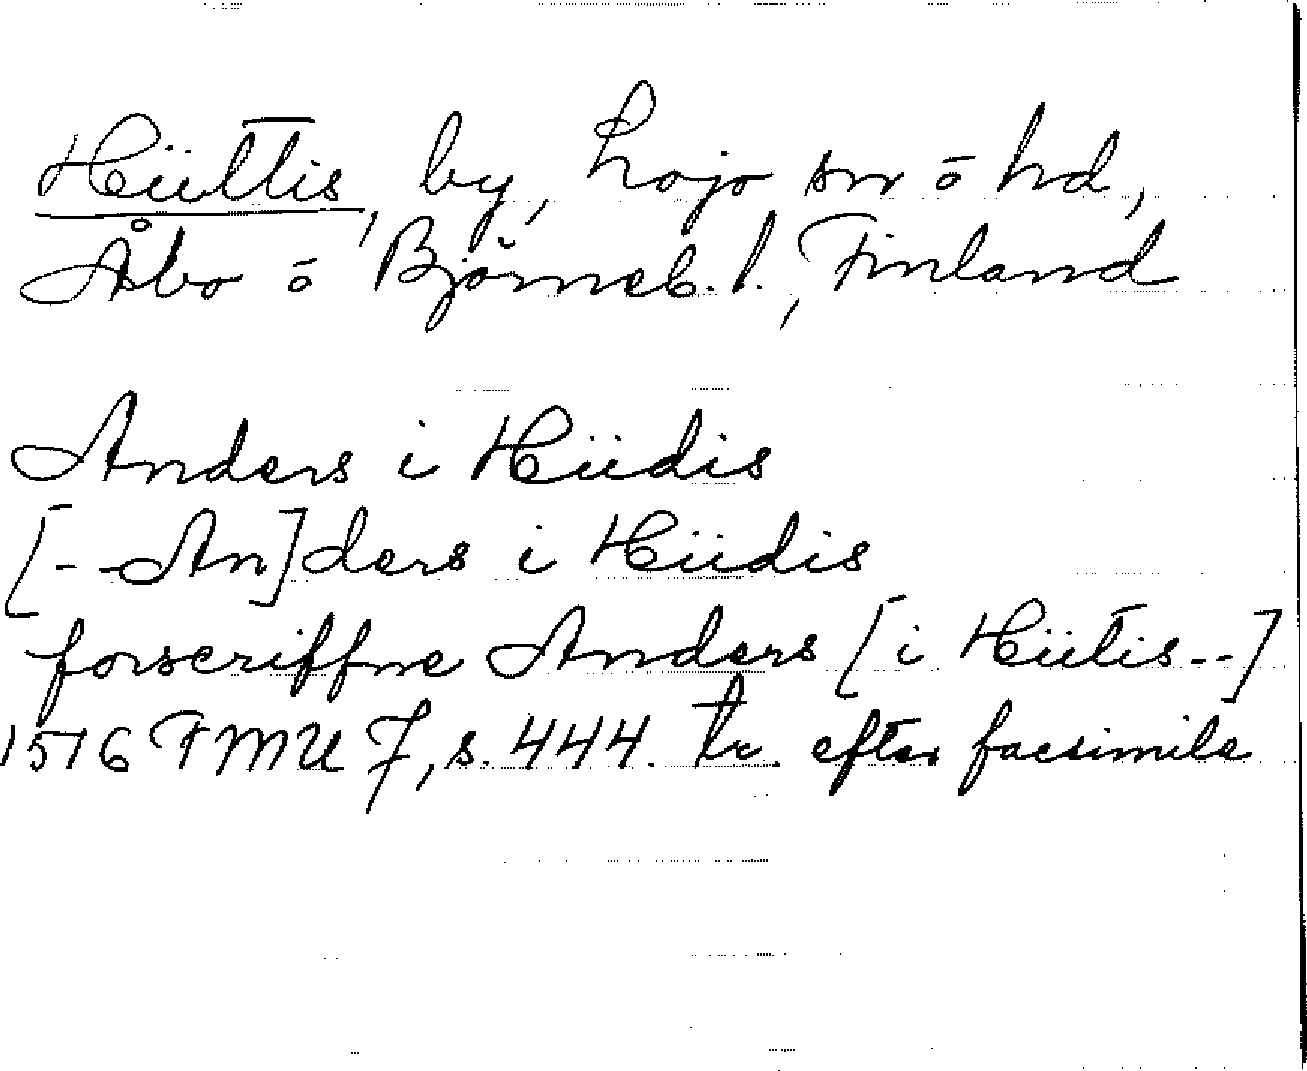 Hiittis, by, Lojo sn o hd,
Åbo o Björneb. l., Finland
Anders i Hiidis
[--An]ders i Hiidis
forscriffne Anders [i Hiitis--]
1516 FMU 7, s. 444. tr. efter facsimile